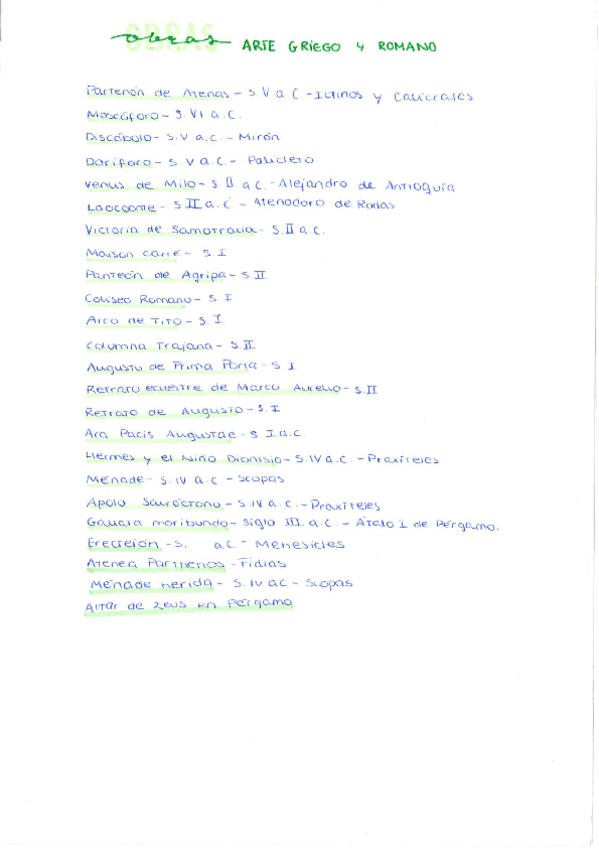 obras ARTE GRIEGO Y ROMANO
Partenón de Atenas - S.V a C - Ictinos y Calicrates
Moscóforo - S.VI a.C.
Discóbolo - S.V a.C. - Mirón
Doríforo - S.V a.C. - Policleto
Venus de Milo - S.II a.C. - Alejandro de Antioquía
Laocoonte - S II a.C - Atenodoro de Rodas
Victoria de Samotracia - S.II a.C.
Maison carré - S. I
Panteón de Agripa - S II
Coliseo Romano - S. I
Arco de Tito - S. I
Columna Trajana - S.II
Augusto de Prima Porta - S I
Retrato ecuestre de Marco Aurelio - S.II
Retrato de Augusto - S.I
Ara Pacis Augustae - S I a.C.
Hermes y el Niño Dionisio - S.IV a.C. - Praxíteles
Ménade - S.IV a.C - Scopas
Apolo Sauróctono - S.IV a.C. - Praxíteles
Gálata moribundo - Siglo III a.C. - Átalo I de Pérgamo.
Erecteión - S. aC - Menesicles
Atenea Parthenos - Fidias
Ménade herida - S.IV aC - Scopas
Altar de Zeus en Pérgamo